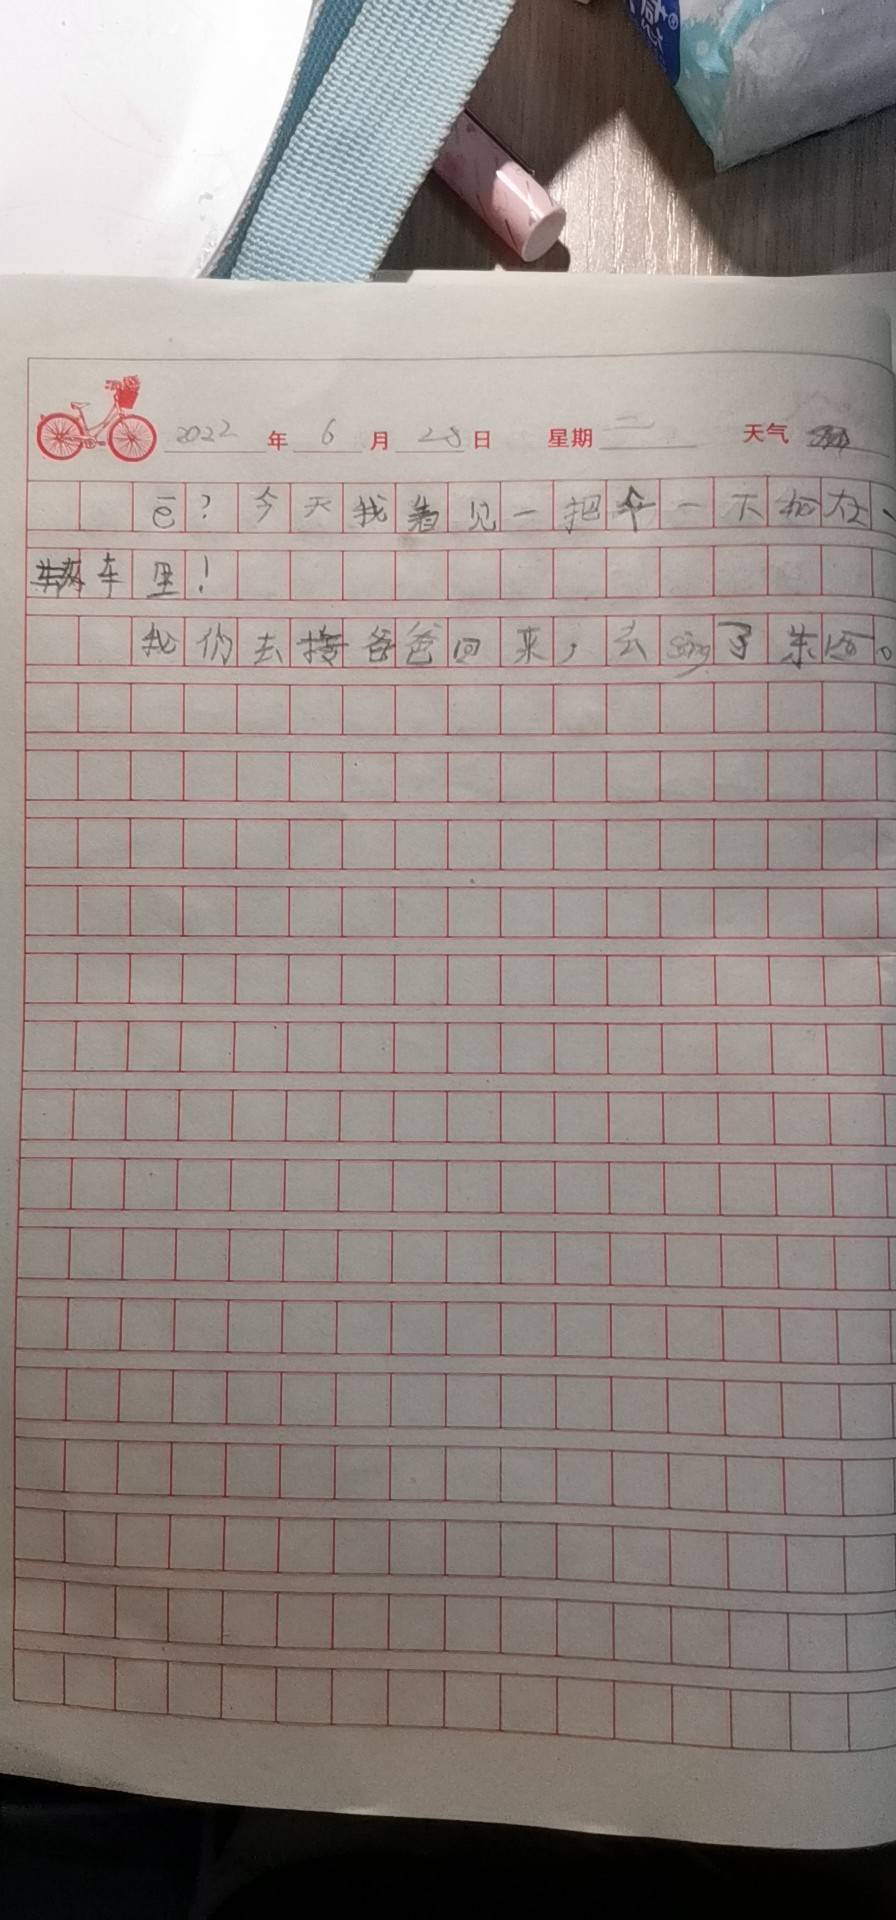 2022年6月28日 星期二 天气
ē?今天我看见一把伞一下把在一
辆车里!
我们去接爸爸回来,去sòng了东西。